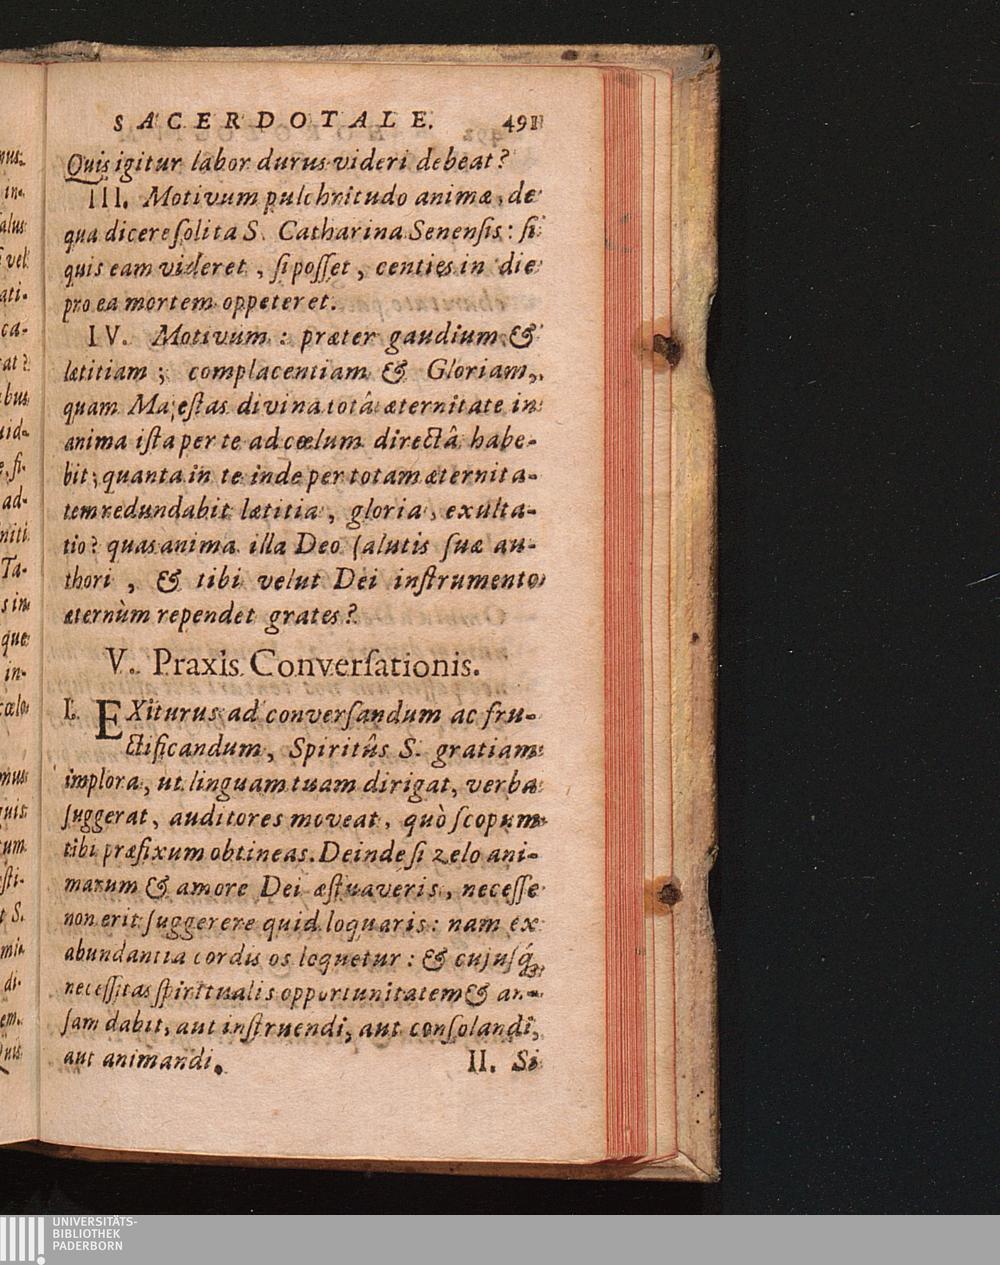 SACERDOTALE. 491
Quis igitur labor durus videri debeat?
III. Motivum pulchritudo animæ, de
qua dicere ſolita S. Catharina Senenſis: ſi
quis eam videret, ſi poſſet, centies in die
pro ea mortem oppeteret.
IV. Motivum: præter gaudium &
lætitiam; complacentiam & Gloriam,
quam Majeſtas divina totâ æternitate in
anima iſta per te ad cœlum directâ habe-
bit; quanta in te inde per totam æternita-
tem redundabit lætitia, gloria, exulta-
tio? quas anima illa Deo ſalutis ſuæ au-
thori, & tibi velut Dei inſtrumento
æternùm rependet grates?
V. Praxis Converſationis.
I. EXiturus ad converſandum ac fru-
ctificandum, Spiritûs S. gratiam
implora, ut linguam tuam dirigat, verba
ſuggerat, auditores moveat, quò ſcopum
tibi præfixum obtineas. Deinde ſi zelo ani-
marum & amore Dei æſtuaveris, neceſſe
non erit ſuggerere quid loquaris: nam ex
abundantia cordis os loquetur: & cujuſq́;
neceſſitas ſpiritualis opportunitatem & an-
ſam dabit, aut inſtruendi, aut conſolandi,
aut animandi. II. Si
mus
in-
alus
ſi vel
ati-
ca-
rat?
bus
uid-
ſi-
ad-
niti
Ta-
s in
que
in-
cœlo
mus
quis
tum
ſti-
t S.
mia
di-
em.
Quis
UNIVERSITÄTS-
BIBLIOTHEK
PADERBORN